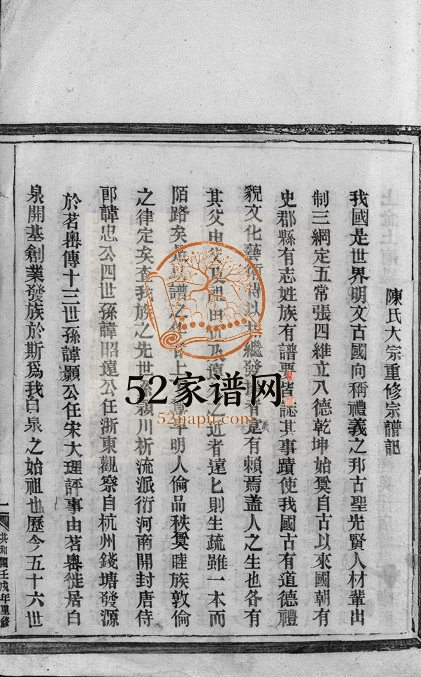 陳氏大宗重修宗譜記
我國是世界明文古國向稱禮義之邦古聖先賢人材輩出
制三綱定五常張四維立八德乾坤始奠自古以來國朝有
史郡縣有志姓族有譜要皆誌其事蹟使我國古有道德禮
貌文化藝術得以繼發揚是有賴焉蓋人之生也各有
其父由父及祖由世乃遠之近者遠匕則生疏雖一本而
陌路矣是譜之作者上明人倫品秩奠睦族敦倫
之律定矣查我族之先世穎川析流派衍河南開封唐侍
郎諱忠公四世孫諱昭遠公任浙東觀察自杭州錢塘發源
於茗嶴傳十三世孫諱顥公任宋大理評事由茗嶴徙居白
泉開基創業發族於斯爲我白泉之始祖也歷今五十六世
共和國壬戌年重修
52家谱网
www.52jiapu.com